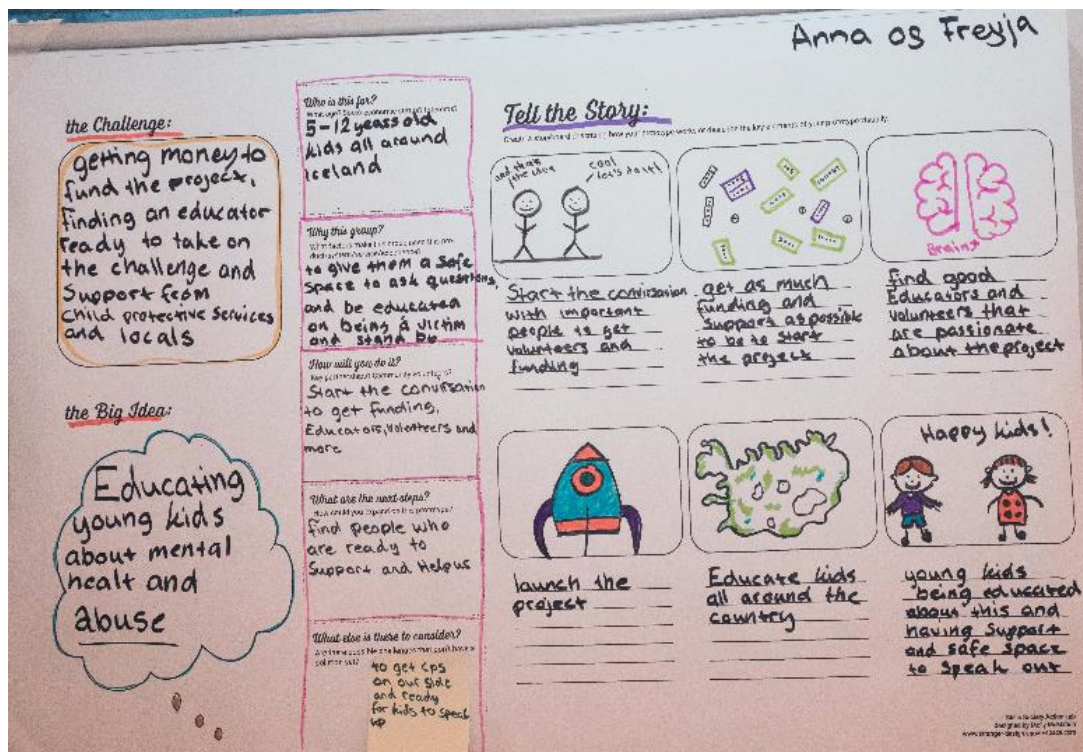 Anna og Freyja
the Challenge:
getting money to
fund the project,
finding an educator
ready to take on
the challenge and
Support from
child protective services
and locals
the Big Idea:
Educating
young kids
about mental
healt and
abuse
Who is this for?
5-12 years old
kids all around
Iceland
Why this group?
to give them a safe
space to ask questions,
and be educated
on being a victim
and stand by
How will you do it?
Start the convirsation
to get funding,
Educators, Volunteers and
more
What are the next steps?
How could you expand on this prototype?
find people who
are ready to
Support and Help us
What else is there to consider?
Are there possible challenges that don't have a
solution yet?
to get cps
on our side
and ready
for kids to speak
up
Tell the Story:
and that's
the idea
cool
let's do it!
Start the convirsation
with important
people to get
volunteers and
funding
get as much
funding and
support as possible
to be to start
the project
Brains
find good
Educators and
volunteers that
are passionate
about the project
launch the
project
Educate kids
all around the
country
Happy kids!
young kids
being educated
about this and
having support
and safe space
to speak out